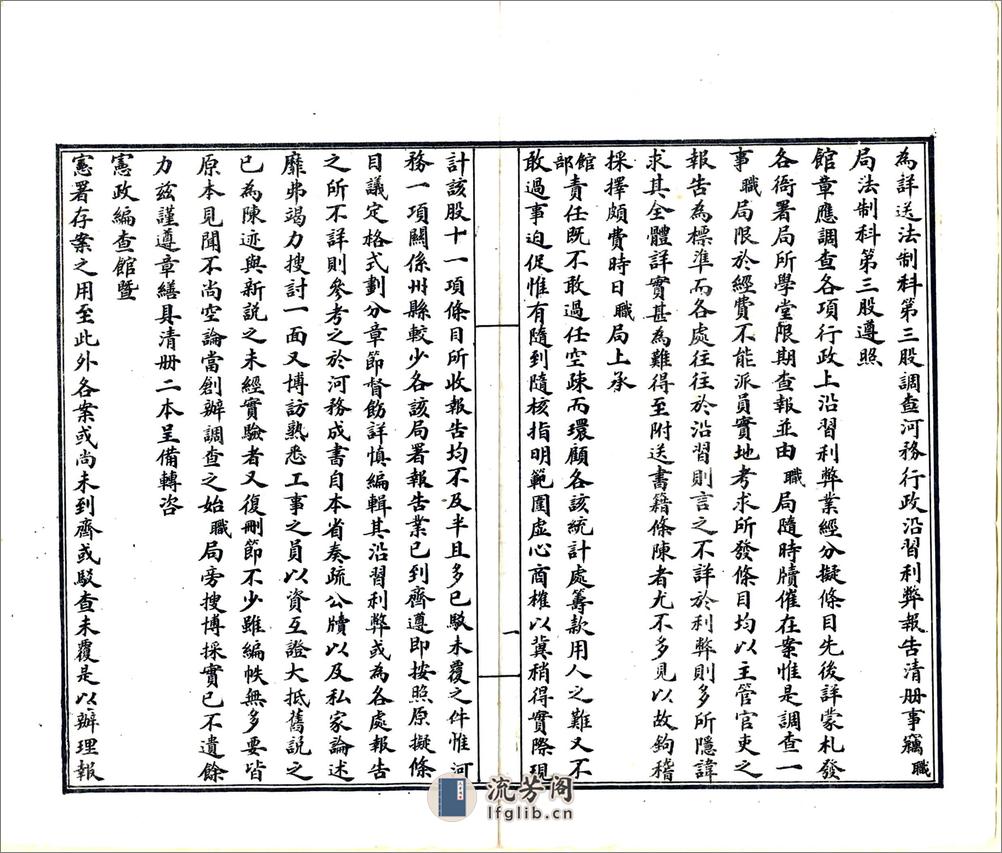 為詳送法制科第三股調查河務行政沿習利弊報告清册事竊職
局法制科第三股遵照
館章應調查各項行政上沿習利弊業經分擬條目先後詳蒙札發
各衙署局所學堂限期查報並由職局隨時牘催在案惟是調查一
事職局限於經費不能派員實地考求所發條目均以主管官吏之
報告為標準而各處往往於沿習則言之不詳於利弊則多所隱諱
求其全體詳實甚為難得至附送書籍條陳者尤不多見以故鉤稽
採擇頗費時日職局上承
館部責任既不敢過任空疎而環顧各該統計處籌款用人之難又不
敢過事迫促惟有隨到隨核指明範圍虛心商榷以冀稍得實際現
一
計該股十一項條目所收報告均不及半且多已駁未覆之件惟河
務一項關係州縣較少各該局署報告業已到齊遵即按照原擬條
目議定格式劃分章節督飭詳慎編輯其沿習利弊或為各處報告
之所不詳則參考之於河務成書自本省奏疏公牘以及私家論述
靡弗竭力搜討一面又博訪熟悉工事之員以資互證大抵舊說之
已為陳迹與新說之未經實驗者又復刪節不少雖編帙無多要皆
原本見聞不尚空論當創辦調查之始職局旁搜博採實已不遺餘
力茲謹遵章繕具清册二本呈備轉咨
憲政編查館暨
憲署存案之用至此外各案或尚未到齊或駁查未覆是以辦理報
流芳阁
lfglib.cn